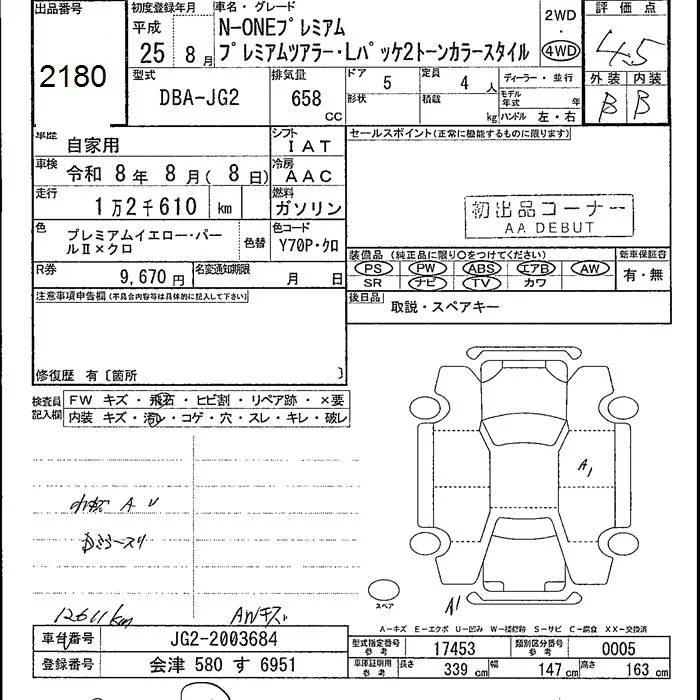 出品番号
2180
初度登録年月
平成
25 8月
車名・グレード
N-ONEプレミアム
プレミアムツアラー・Lパッケ2トーンカラースタイル
2WD
・
4WD
評価点
4.5
外装 内装
B B
型式
DBA-JG2
排気量
658
CC
ドア 5
形状
定員 4人
積載 kg
ディーラー・並行
モデル年式 年
ハンドル 左・右
車歴
自家用
シフト
IAT
車検
令和 8年 8月( 8日)
冷房
AAC
走行
1万2千610 km
燃料
ガソリン
色
プレミアムイエロー・パー
ルⅡ×クロ
色替
色コード
Y70P・クロ
R券
9,670円
名変通知期限
月 日
セールスポイント(正常に機能するものに限ります)
初出品コーナー
AA DEBUT
装備品(純正品に限り○をつけてください)
PS PW ABS エアB AW
SR ナビ TV カワ
新車保証書
有・無
後日品
取説・スペアキー
注意事項申告欄(不具合内容等は具体的に記入して下さい)
修復歴 有〔箇所 〕
検査員
記入欄
FW キズ・飛石・ヒビ割・リペア跡・×要
内装 キズ・汚レ・コゲ・穴・スレ・キレ・破レ
A1
A U
12611km
AWキズ
スペア
A1
A-キズ E-エクボ U-凹み W-補修跡 S-サビ C-腐食 XX-交換済
車台番号
JG2-2003684
登録番号
会津 580 す 6951
型式指定番号
参考
17453
類別区分番号
参考
0005
車庫証明用
参考
長さ 339 cm 幅 147 cm 高さ 163 cm